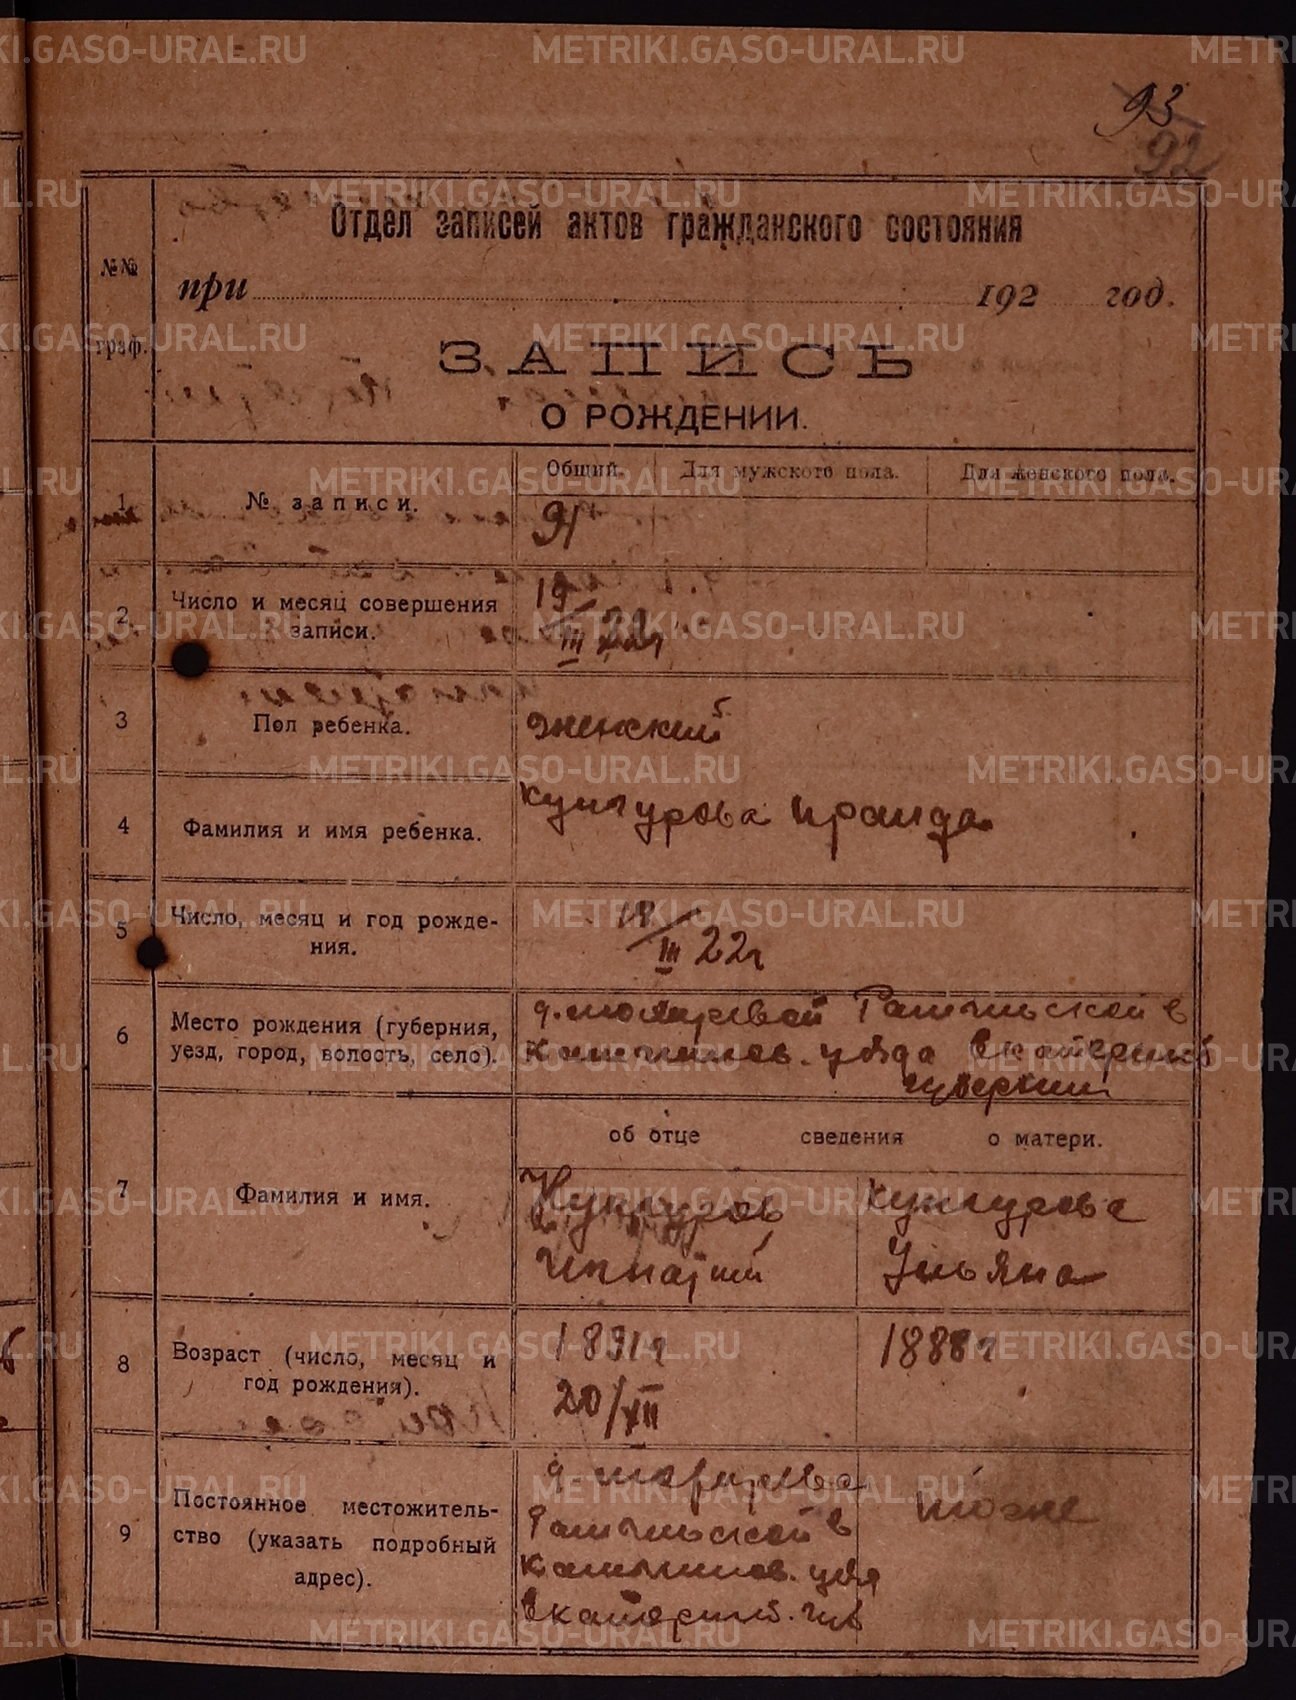 93
92
Отдел записей актов гражданского состояния
№№ граф.
при 192 год.
ЗАПИСЬ
О РОЖДЕНИИ.
1 № записи. Общий. Для мужского пола. Для женского пола.
91
2 Число и месяц совершения записи.
19/III 22г
3 Пол ребенка. женский
4 Фамилия и имя ребенка. Кунгурова Ираида
5 Число, месяц и год рождения.
/III 22г
6 Место рождения (губерния, уезд, город, волость, село).
д. в
Камышлов. уезда Екатеринб
губернии
об отце сведения о матери.
7 Фамилия и имя.
Кунгуров Кунгурова
Игнатий Ульяна
8 Возраст (число, месяц и год рождения).
1891г 1888г
20/XII
9 Постоянное местожительство (указать подробный адрес).
д. тоже
в
Камышлов. уез
Екатеринб. губ
METRIKI.GASO-URAL.RU